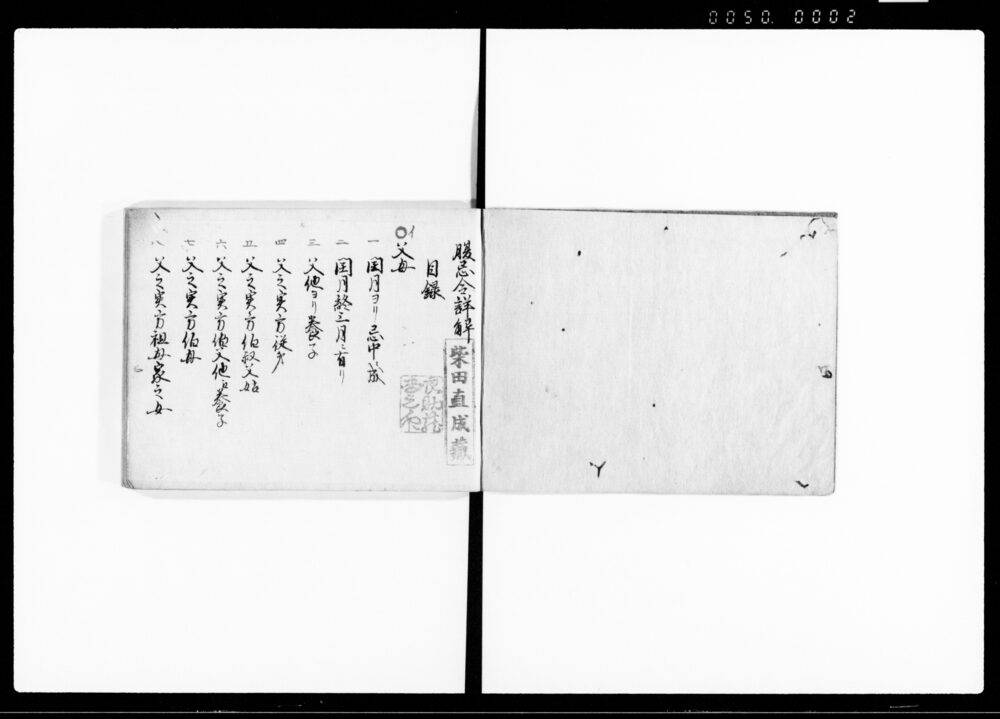 0050. 0002
服忌令詳解
柴田直成蔵
目録
父母
一 閏月ヨリ忌中成
二 閏月終三月ニ有リ
三 父他ヨリ養子
四 父之実方従弟
五 父之実方伯叔父姑
六 父之実方伯父他ヘ養子
七 父之実方伯母
八 父之実方祖母家之女